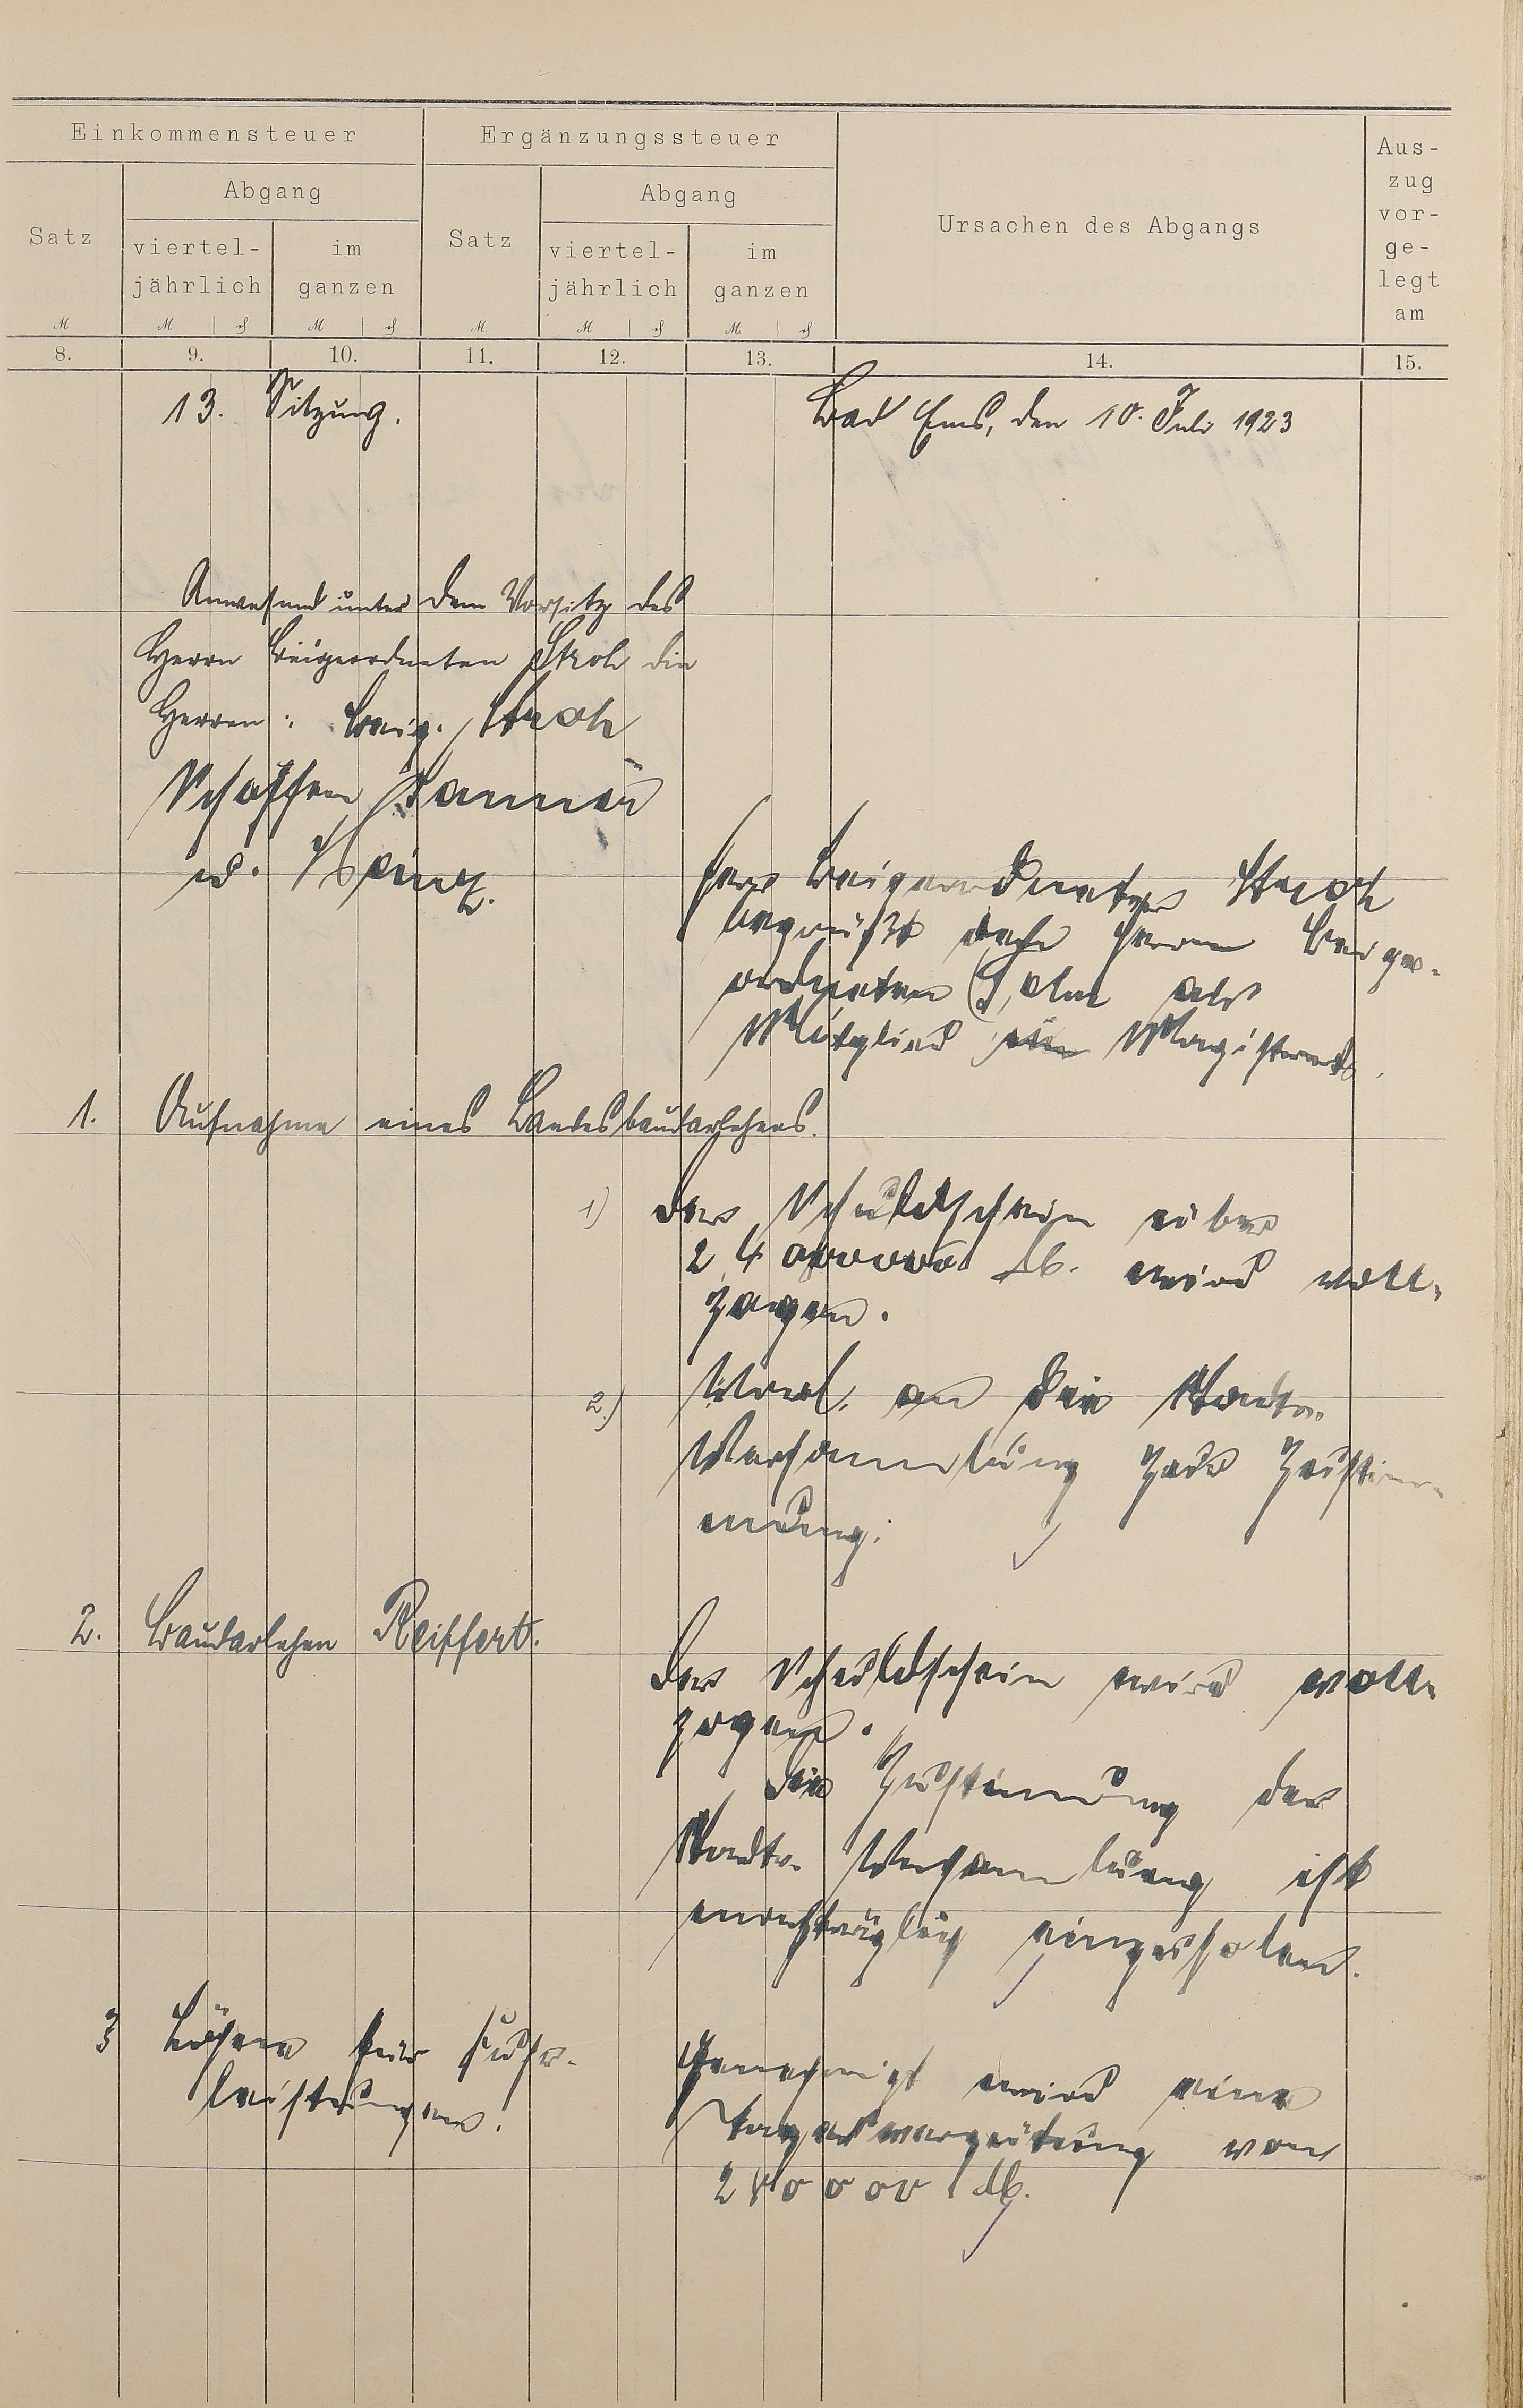 Einkommensteuer
Ergänzungssteuer
Ursachen des Abgangs
Aus-
zug
vor-
ge-
legt
am
Satz
Abgang
viertel-
jährlich
im
ganzen
Satz
Abgang
viertel-
jährlich
im
ganzen
M M ₰ M ₰ M. M ₰ M. ₰
8. 9. 10. 11. 12. 13. 14. 15.
13. Sitzung. Bad Ems, den 10. Juli 1923
Anwesend unter dem Vorsitz des
Herrn Beigeordneten Stroh die
Herren: Beig. Stroh
Schöffen
u.
Herr Beigeordneter Stroh
begrüßt den Herrn Beige-
ordneten als
Mitglied Magistrats.
1. Aufnahme eines Landesbaudarlehens.
1) Der Schuldschein über
24 000000 M. wird voll-
zogen.
2.) Vorl. an die Stadtv.
Versammlung zur Zustim-
mung.
2. Baudarlehen Reiffert.
Der Schuldschein wird voll-
zogen.
Die Zustimmung der
Stadtv. Versammlung ist
nachträglich einzuholen.
3 Löhne für Fuhr-
leistungen.
Genehmigt wird eine
Tagesvergütung von
M.